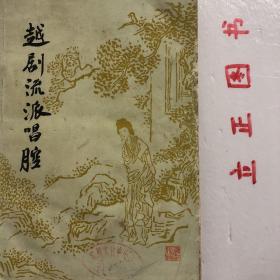 越剧流派唱腔
立正图书